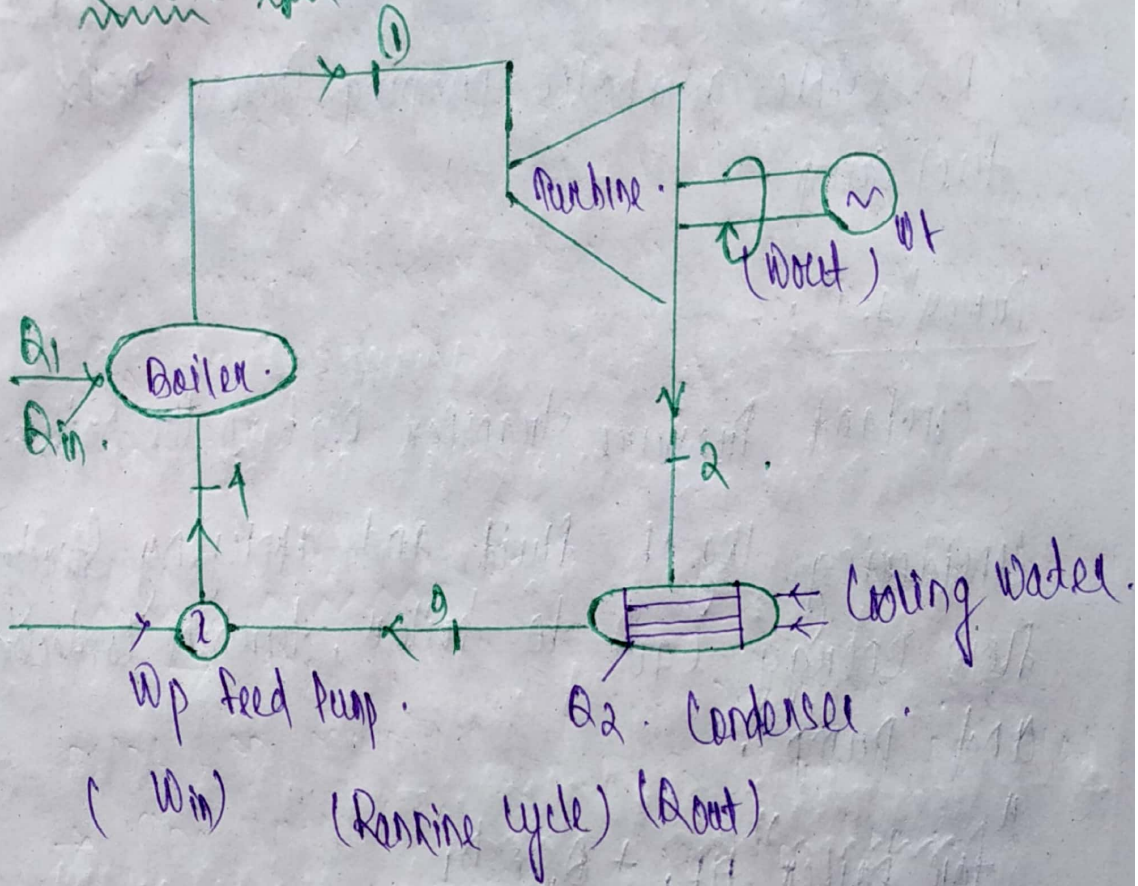 ①
Turbine.
Wt
(Wout)
Q1
Boiler.
Qin.
4
2.
Cooling Water.
Wp feed Pump.
Q2. Condenser.
(Win)
(Rankine Cycle)
(Qout)